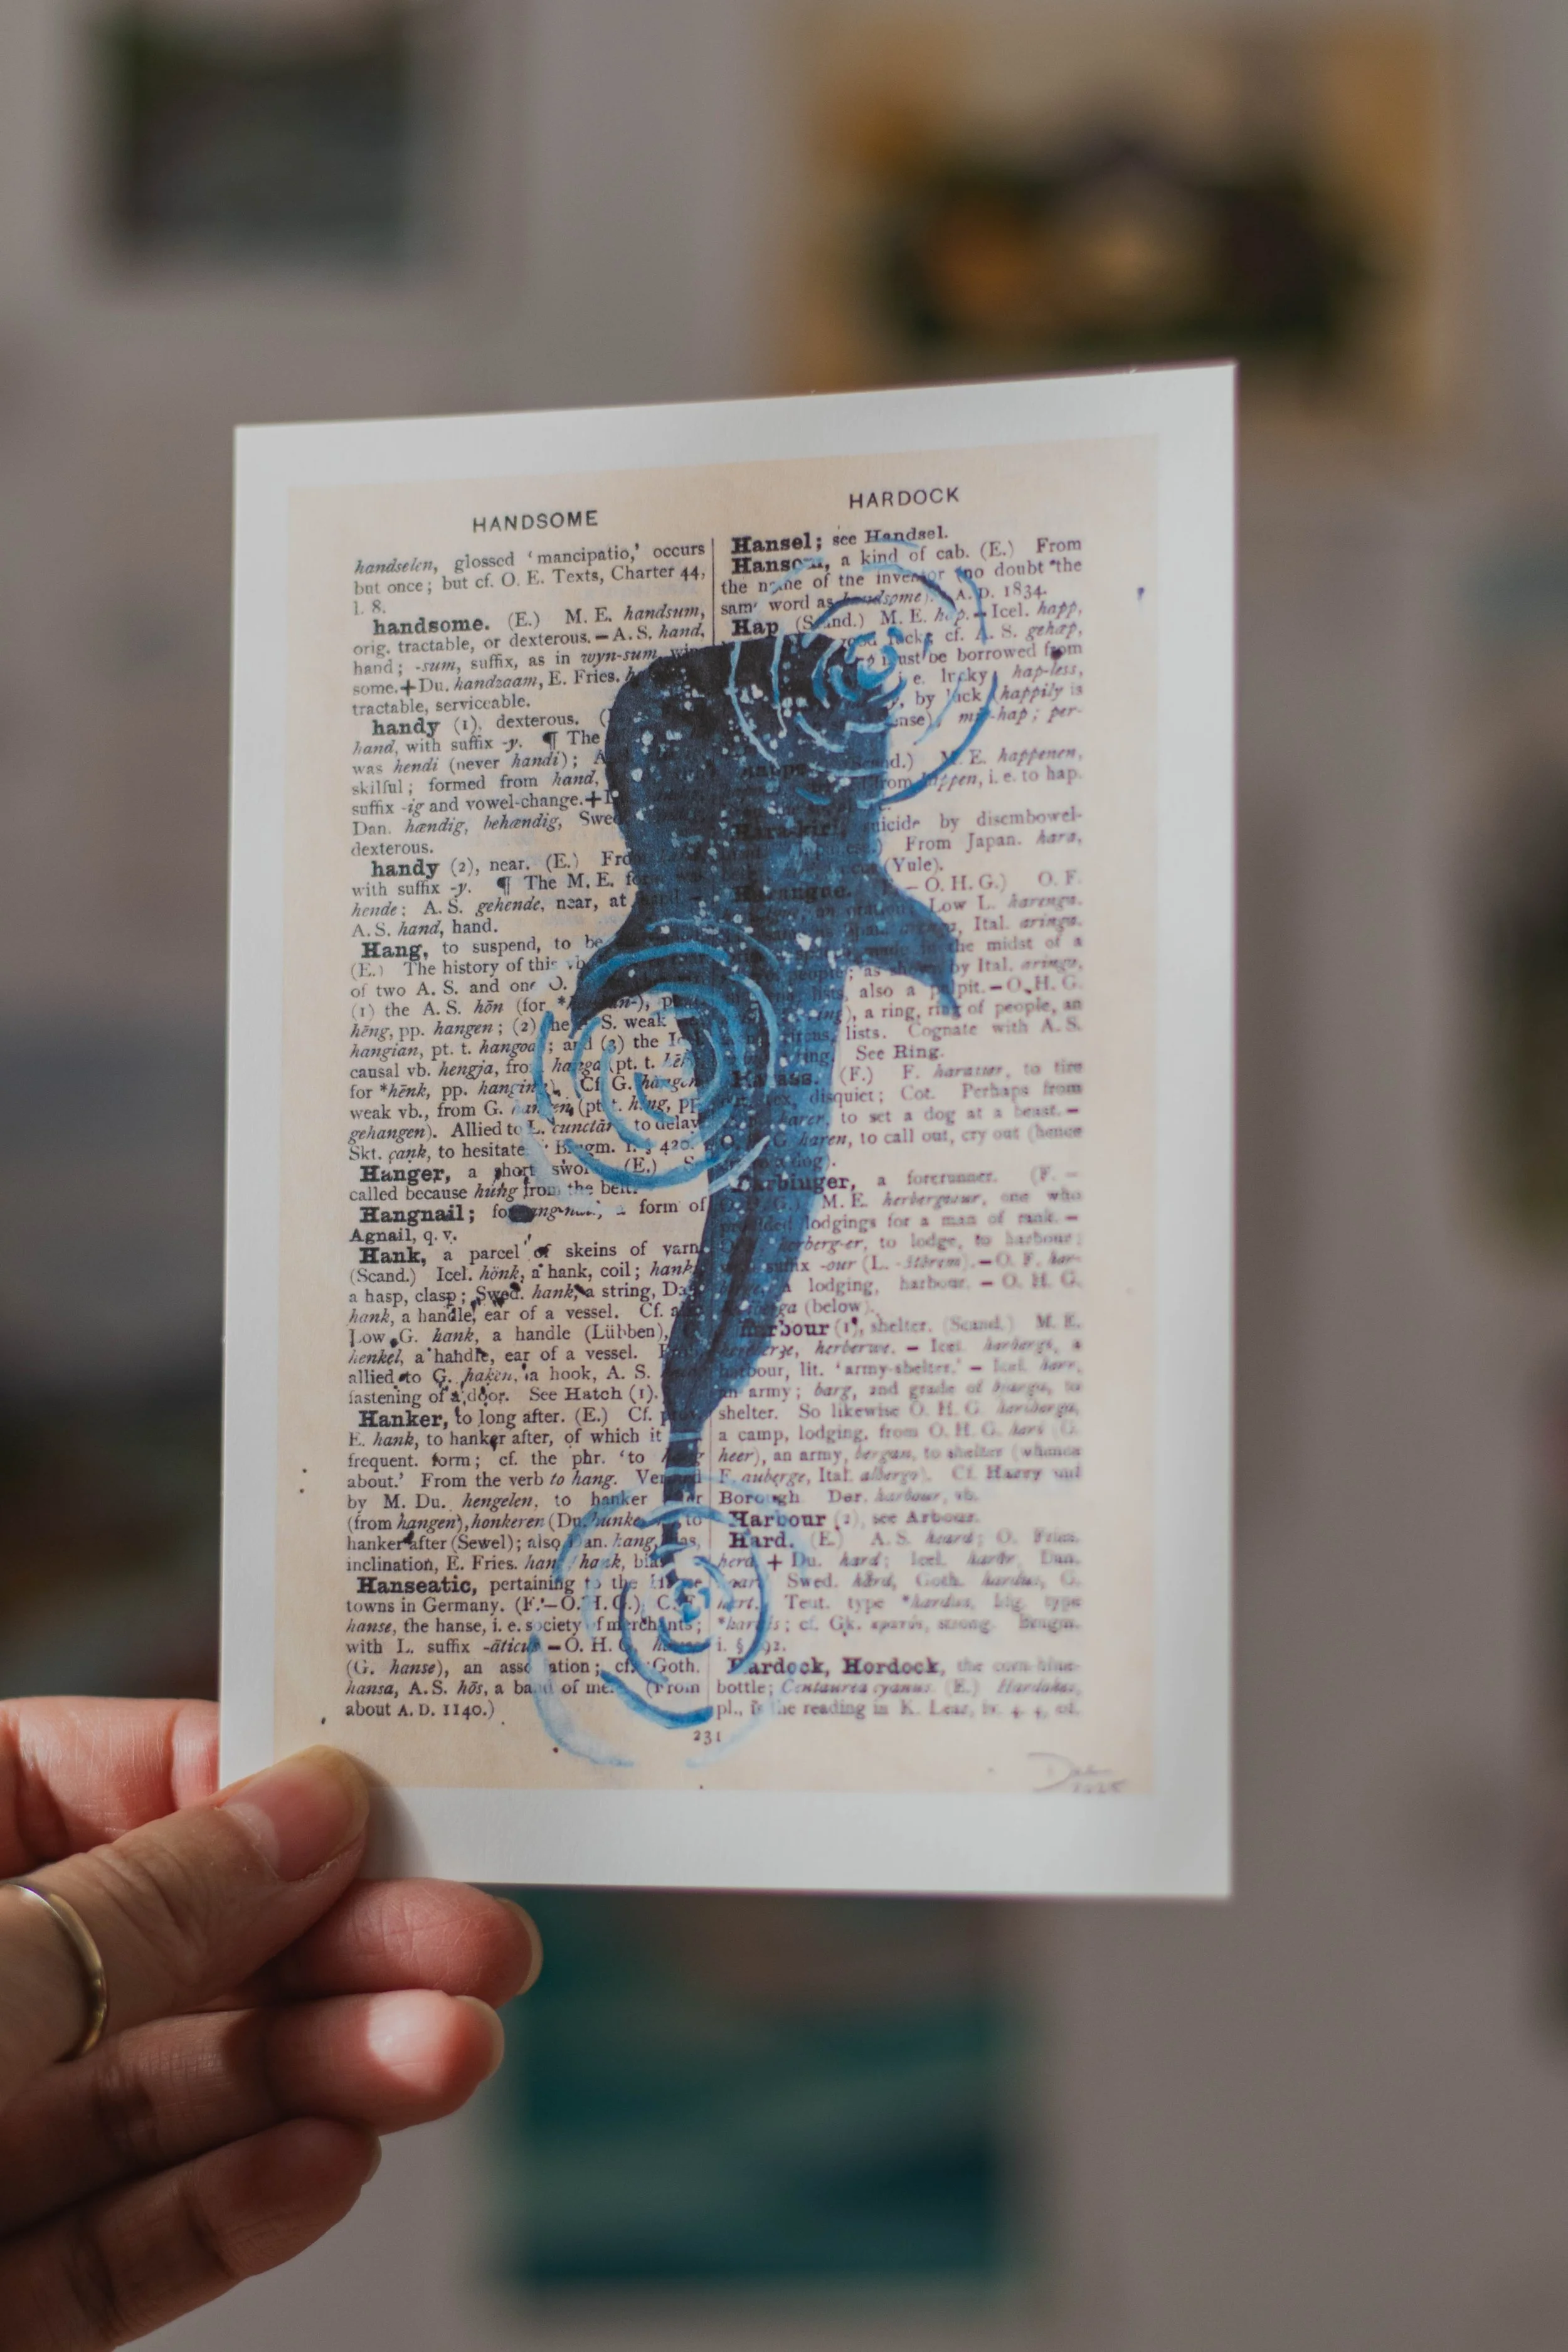 HANDSOME
handselen, glossed 'mancipatio,' occurs
but once; but cf. O. E. Texts, Charter 44,
l. 8.
handsome. (E.) M. E. handsum,
orig. tractable, or dexterous. – A. S. hand,
hand; -sum, suffix, as in wyn-sum,
some. + Du. handzaam, E. Fries.
tractable, serviceable.
handy (1), dexterous.
hand, with suffix -y. ¶ The
was hendi (never handi);
skilful; formed from hand,
suffix -ig and vowel-change. +
Dan. hændig, behændig,
dexterous.
handy (2), near. (E.)
with suffix -y. ¶ The M. E.
hende; A. S. gehende, near, at
A. S. hand, hand.
Hang, to suspend, to be
(E.) The history of this vb.
of two A. S. and one O.
(1) the A. S. hōn (for
hēng, pp. hangen; (2) the S. weak
hangian, pt. t. hangode; and (3) the
causal vb. hengja, from hanga (pt. t.
for *hēnk, pp. hanginn). Cf. G. hängen
weak vb., from G. hangen (pt. t. hing, pp.
gehangen). Allied to L. cunctārī, to delay
Skt. çank, to hesitate. Brugm. i. § 420.
Hanger, a short sword. (E.)
called because hung from the belt.
Hangnail; for form of
Agnail, q. v.
Hank, a parcel of skeins of yarn.
(Scand.) Icel. hönk, a hank, coil; hanki,
a hasp, clasp; Swed. hank, a string,
hank, a handle, ear of a vessel. Cf.
Low G. hank, a handle (Lübben),
henkel, a handle, ear of a vessel.
allied to G. haken, a hook, A. S.
fastening of a door. See Hatch (1).
Hanker, to long after. (E.) Cf.
E. hank, to hanker after, of which it
frequent. form; cf. the phr. 'to hang
about.' From the verb to hang.
by M. Du. hengelen, to hanker
(from hangen), honkeren (Du. hunkeren), to
hanker after (Sewel); also Dan. hang,
inclination, E. Fries.
Hanseatic, pertaining to the Hanse
towns in Germany. (F. – O. H. G.)
hanse, the hanse, i. e. society of merchants;
with L. suffix -āticus – O. H. G.
(G. hanse), an association; cf. Goth.
hansa, A. S. hōs, a band of men. (From
about A. D. 1140.)
HARDOCK
Hansel; see Handsel.
Hansom, a kind of cab. (E.) From
the name of the inventor (no doubt the
same word as handsome). A. D. 1834.
Hap (Scand.) M. E. hap. – Icel. happ,
good luck; cf. A. S. gehæp,
must be borrowed from
i. e. lucky, hap-less,
by luck (happily is
sense), mis-hap; per-
M. E. happenen,
from happen, i. e. to hap.
Hara-kiri, suicide by disembowel-
From Japan. hara,
(Yule).
Harangue. – O. H. G.) O. F.
Low L. harenga.
Ital. aringa.
the midst of a
as shown by Ital. aringo,
lists, also a pulpit. – O. H. G.
a ring, ring of people, an
circus, lists. Cognate with A. S.
hring, ring. See Ring.
Harass. (F.) F. harasser, to tire
vex, disquiet; Cot. Perhaps from
harer, to set a dog at a beast. –
O. H. G. haren, to call out, cry out (hence
a dog).
Harbinger, a forerunner. (F. –
O. H. G.) M. E. herbergeour, one who
provided lodgings for a man of rank. –
herberg-er, to lodge, to harbour;
suffix -our (L.
a lodging, harbour. – O. H. G.
(below).
Harbour (1), shelter. (Scand.) M. E.
herberwe. – Icel. herbergi, a
harbour, lit. 'army-shelter.' – Icel. herr,
an army; barg, 2nd grade of bjarga, to
shelter. So likewise O. H. G. heriberga,
a camp, lodging, from O. H. G. hari (G.
heer), an army, bergan, to shelter (whence
F. auberge, Ital. albergo). Cf. Harry and
Borough. Der. harbour, vb.
Harbour (2), see Arbour.
Hard. (E.) A. S. heard; O. Fries.
herd. + Du. hard; Icel. harðr, Dan.
Swed. hård, Goth. hardus, G.
hart. Teut. type *harduz, Idg. type
cf. Gk. strong. Brugm.
i. §
Hardock, Hordock, the corn-blue-
bottle; Centaurea cyanus. (E.) Hardokes,
pl., is the reading in K. Lear, iv. 4. 4, ed.
231